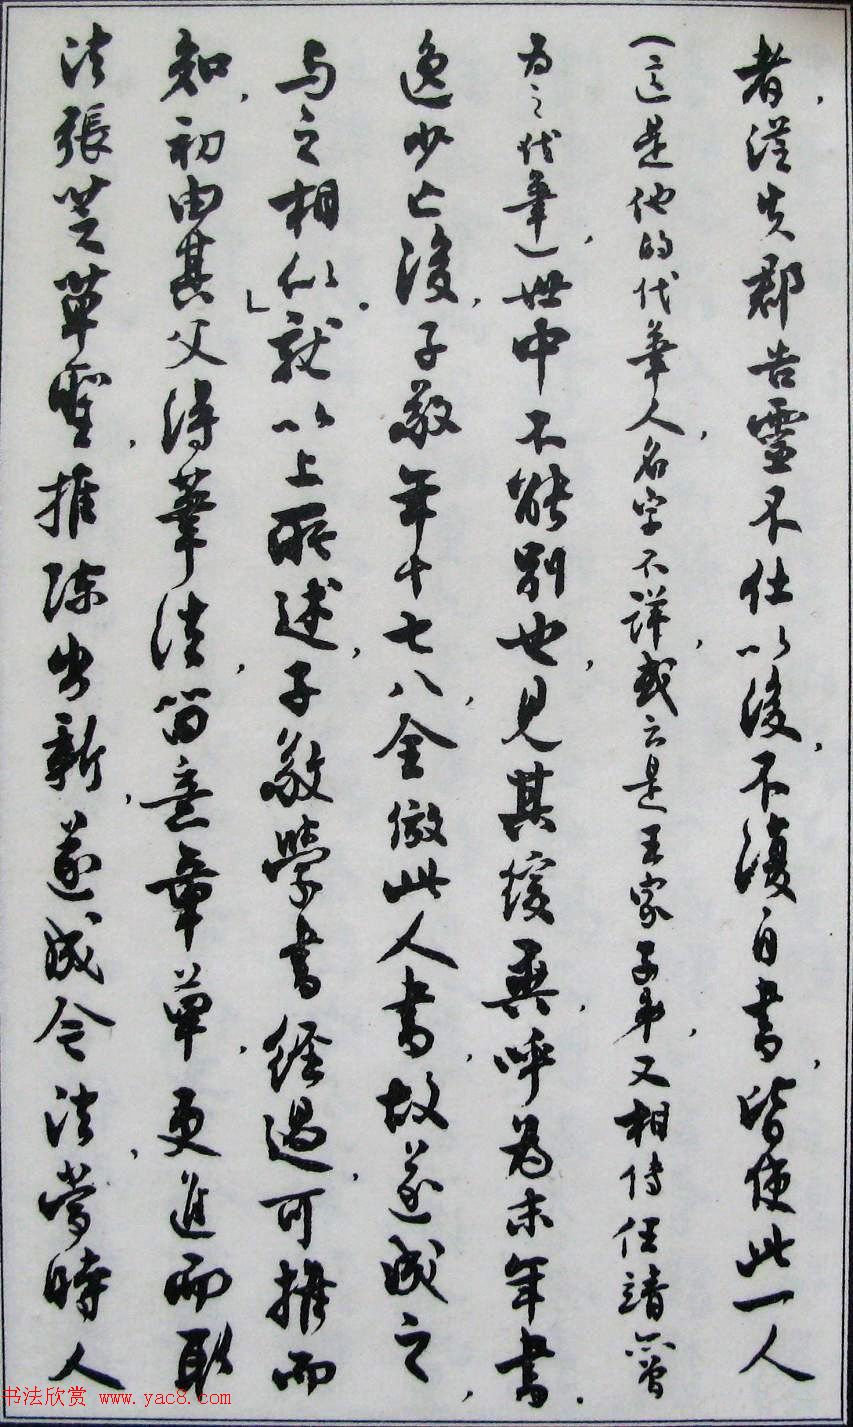 者，從失郡告靈不仕以後，不復自書，皆使此一人
（這是他的代筆人，名字不詳，或云是王家子弟，又相傳任靖曾
为之代筆），世中不能别也，見其緩異，呼為末年書．
逸少亡後，子敬年十七八，全倣此人書，故遂成之，
与之相似．」就以上所述，子敬學書經過，可推而
知，初由其父得筆法，留意章草，更進而取
法張芝草聖，推陳出新，遂成今法，當時人
书法欣赏 www.yac8.com